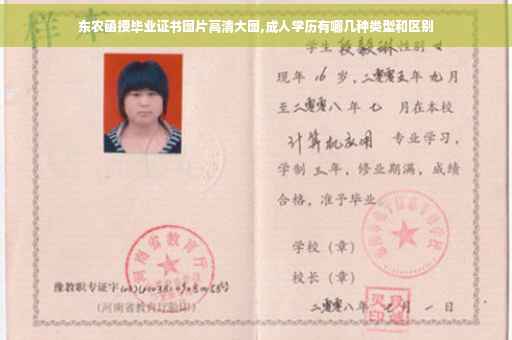 东农函授毕业证书图片高清大图,成人学历有哪几种类型和区别
样本
学生 性别 女
现年 16 岁,二零零五年 九月
至二零零八年 七 月在本校
计算机应用 专业学习,
学制 三年,修业期满,成绩
合格,准予毕业
学校(章)
校长(章)
河南省教育厅
豫教职专证字
(河南省教育厅验印)
二零零八年 月 一 日